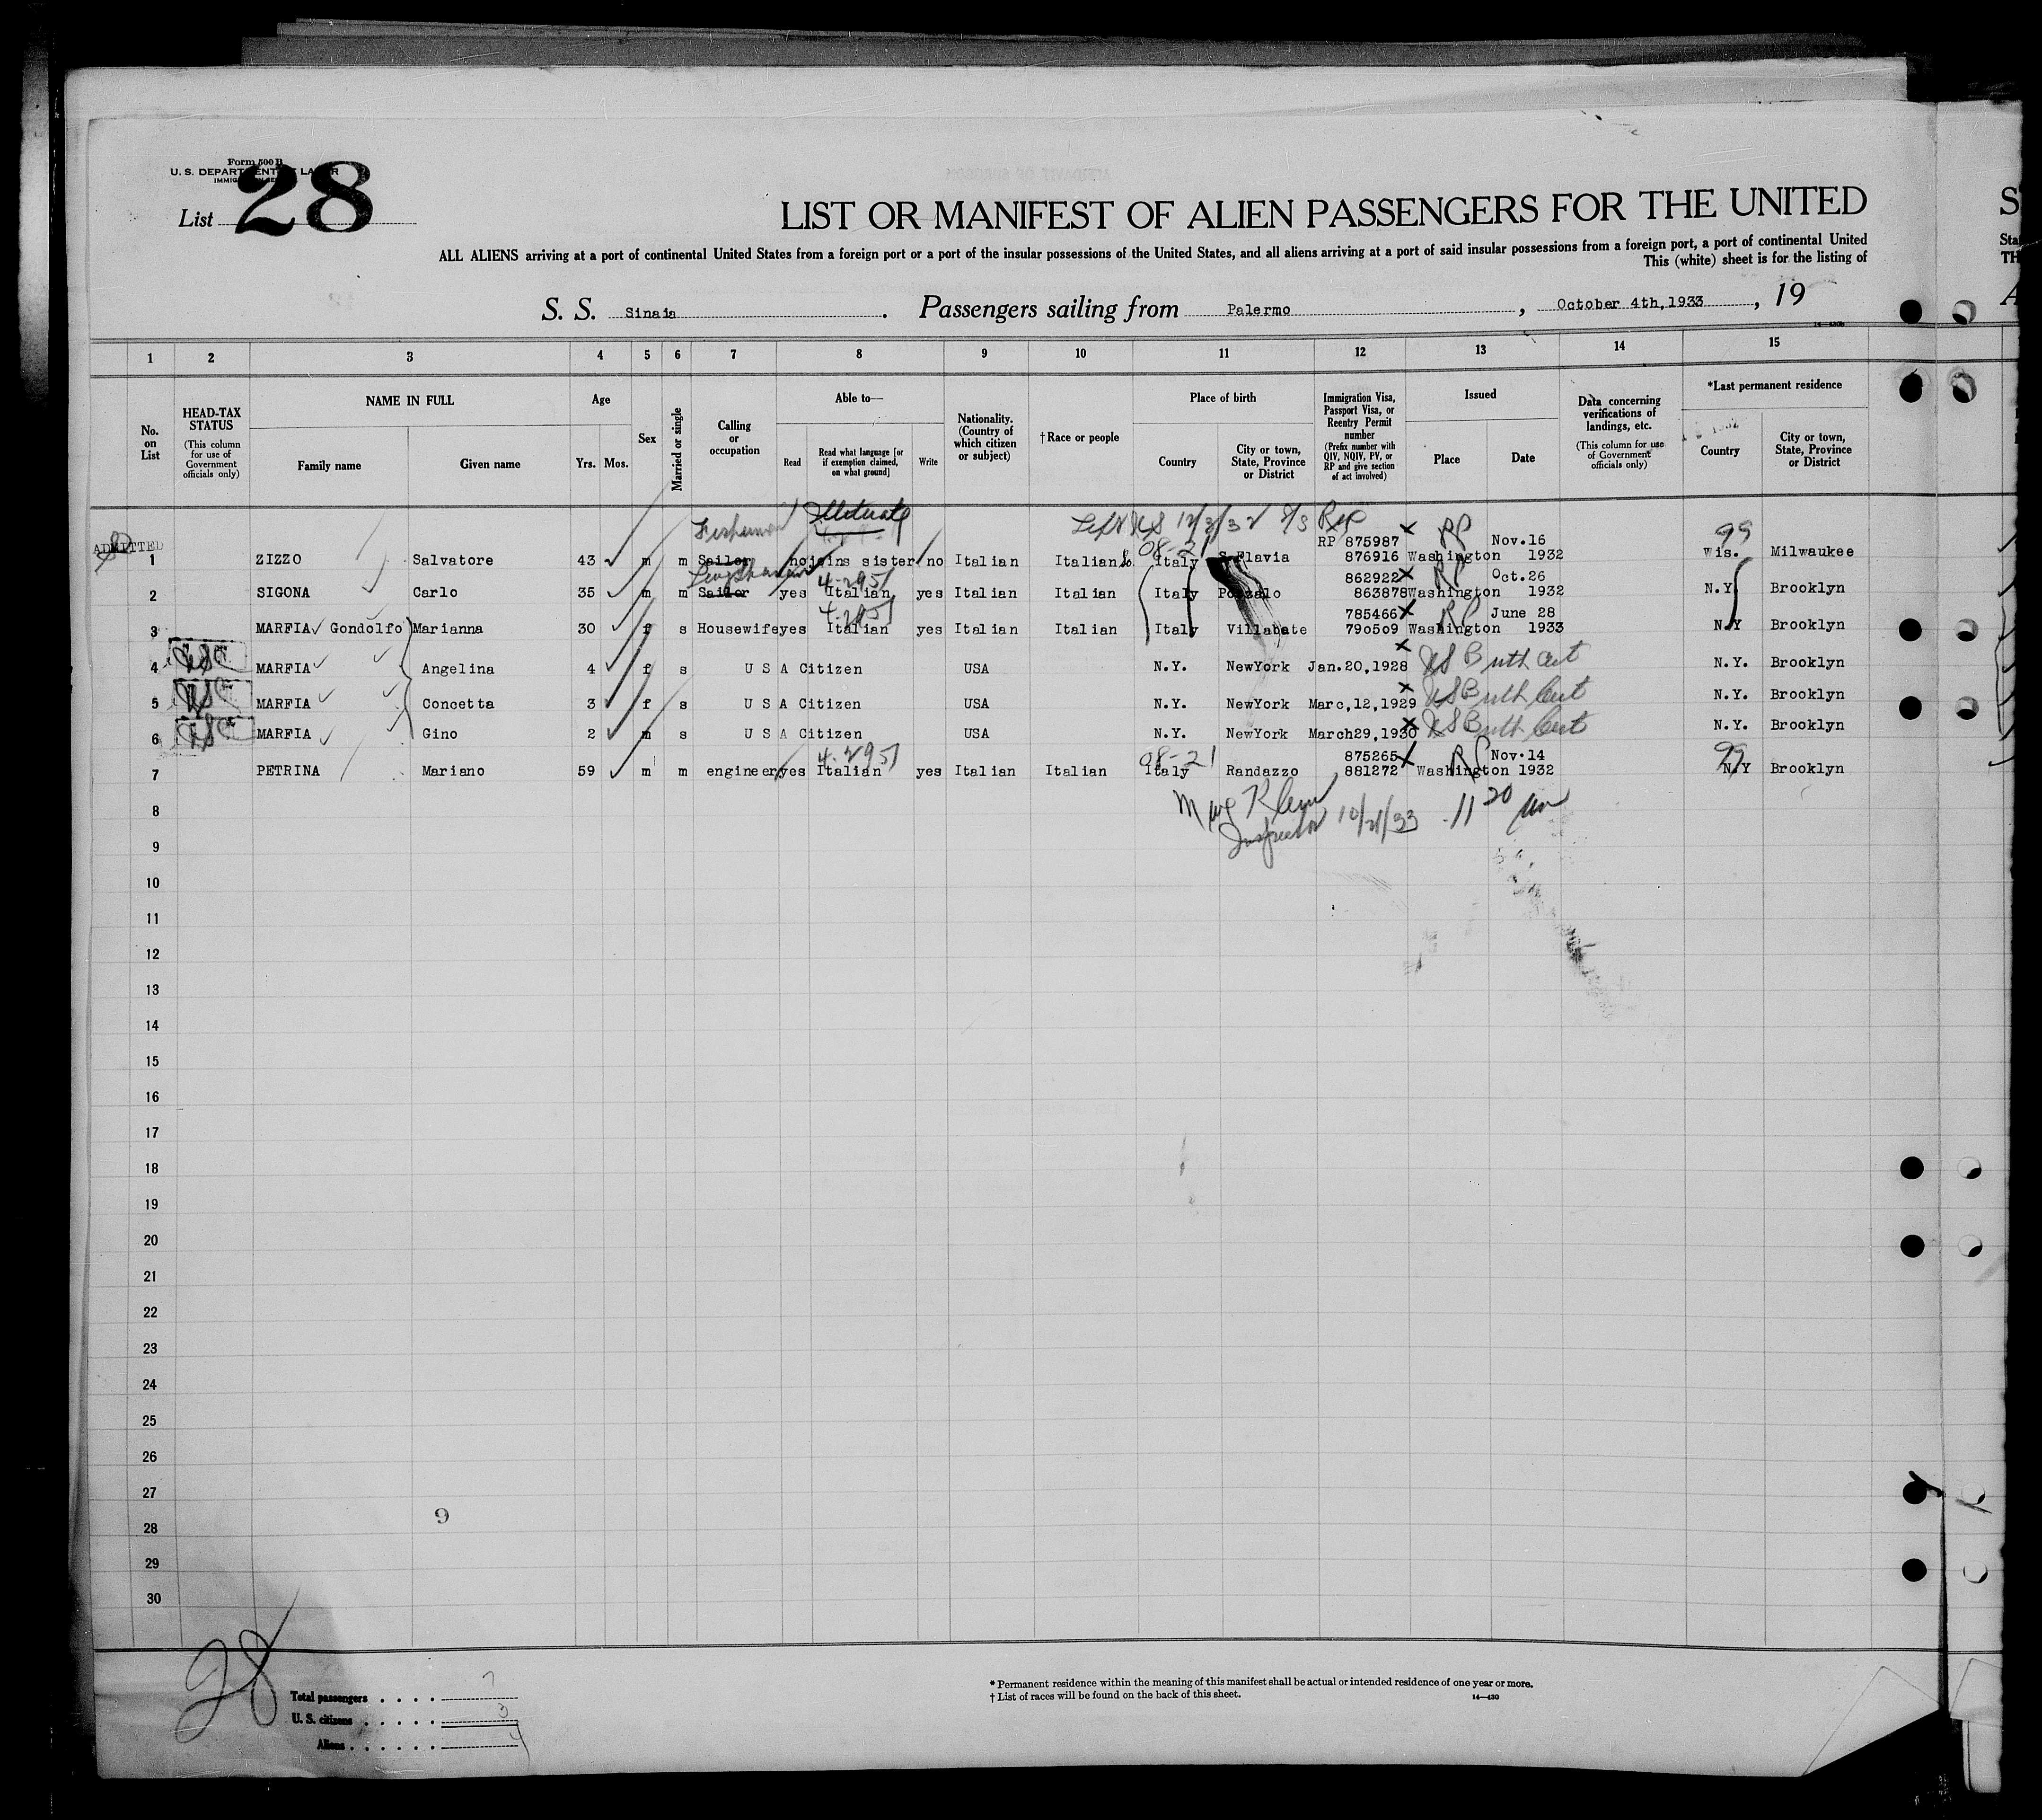 Form 500 B
U. S. DEPARTMENT OF LABOR
List 28
LIST OR MANIFEST OF ALIEN PASSENGERS FOR THE UNITED
ALL ALIENS arriving at a port of continental United States from a foreign port or a port of the insular possessions of the United States, and all aliens arriving at a port of said insular possessions from a foreign port, a port of continental United
This (white) sheet is for the listing of
S. S. Sinaia . Passengers sailing from Palermo , October 4th,1933 , 19
1 2 3 4 5 6 7 8 9 10 11 12 13 14 15
No. on List
HEAD-TAX STATUS (This column for use of Government officials only)
NAME IN FULL
Family name Given name
Age
Yrs. Mos.
Sex
Married or single
Calling or occupation
Able to—
Read
Read what language [or if exemption claimed, on what ground]
Write
Nationality. (Country of which citizen or subject)
†Race or people
Place of birth
Country
City or town, State, Province or District
Immigration Visa, Passport Visa, or Reentry Permit number (Prefix number with QIV, NQIV, PV, or RP and give section of act involved)
Issued
Place Date
Data concerning verifications of landings, etc. (This column for use of Government officials only)
*Last permanent residence
Country
City or town, State, Province or District
Fisherman Illiterate Left US 12/3/32
ADMITTED 08-21 RP 875987 RP Nov.16 99
1 ZIZZO Salvatore 43 m m Sailor no joins sister no Italian Italian Italy S.Flavia 876916 Washington 1932 Wis. Milwaukee
Longshoreman 4-2951 862922 RP Oct.26
2 SIGONA Carlo 35 m m Sailor yes Italian yes Italian Italian Italy Pozzalo 863878 Washington 1932 N.Y Brooklyn
4-2951 785466 RP June 28
3 MARFIA Gondolfo Marianna 30 f s Housewife yes Italian yes Italian Italian Italy Villabate 790509 Washington 1933 N.Y Brooklyn
4 USC MARFIA Angelina 4 f s U S A Citizen USA N.Y. NewYork Jan.20,1928 US Birth Cert N.Y. Brooklyn
5 USC MARFIA Concetta 3 f s U S A Citizen USA N.Y. NewYork Marc,12,1929 US Birth Cert N.Y. Brooklyn
6 USC MARFIA Gino 2 m s U S A Citizen USA N.Y. NewYork March29,1930 US Birth Cert N.Y. Brooklyn
4-2951 08-21 875265 RP Nov.14 99
7 PETRINA Mariano 59 m m engineer yes Italian yes Italian Italian Italy Randazzo 881272 Washington 1932 N.Y Brooklyn
8
Inspector 10/21/33 11 20 am
9
10
11
12
13
14
15
16
17
18
19
20
21
22
23
24
25
26
27
9
28
29
30
28
Total passengers . . . . 7
U. S. citizens . . . . . 3
Aliens . . . . . . 4
* Permanent residence within the meaning of this manifest shall be actual or intended residence of one year or more.
† List of races will be found on the back of this sheet.
14—430